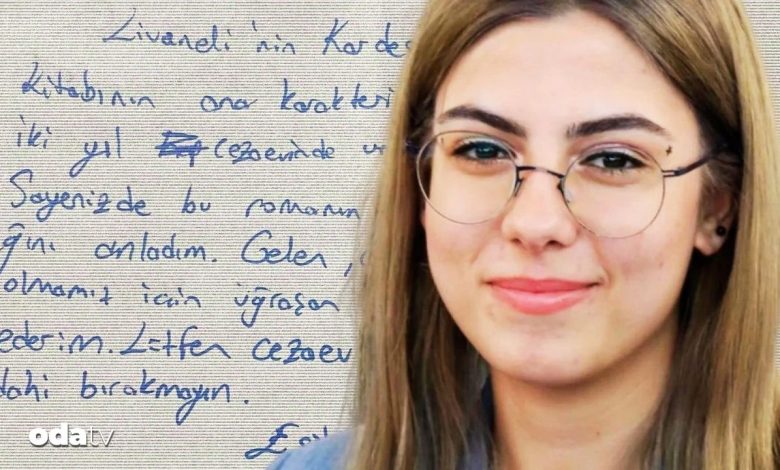 Livaneli'nin Kardeş
Kitabının ana karakteri
iki yıl cezaevinde
Sayenizde bu romanın
ğını anladım. Gelen,
olmamız için uğraşan
ederim. Lütfen cezaev
dahi bırakmayın.
odatv